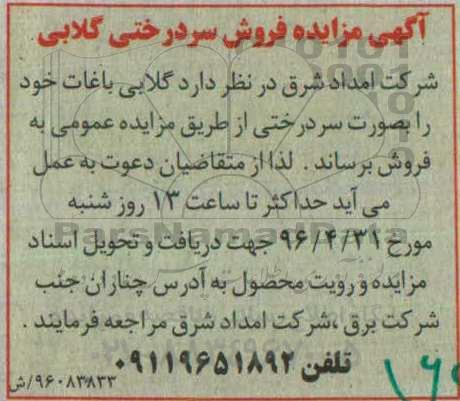 آگهی مزایده فروش سردرختی گلابی
شرکت امداد شرق در نظر دارد گلابی باغات خود
را بصورت سردرختی از طریق مزایده عمومی به
فروش برساند . لذا از متقاضیان دعوت به عمل
می آید حداکثر تا ساعت ۱۳ روز شنبه
مورخ ۹۶/۴/۳۱ جهت دریافت و تحویل اسناد
مزایده و رویت محصول به آدرس چناران جنب
شرکت برق ،شرکت امداد شرق مراجعه فرمایند .
تلفن ۰۹۱۱۹۶۵۱۸۹۲
۹۶۰۸۳۸۳۳/ش
ParsNamadData